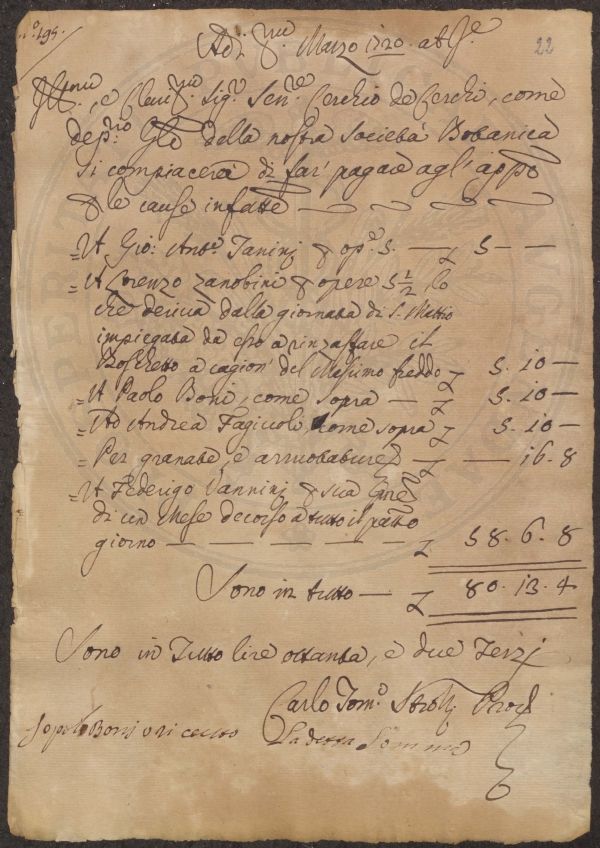 n.o 195.
Adì pmo Marzo 1720. ab Ie. 22
Illmo, e Clarmo Sigr Senre Cerchio de Cerchi, come
depo Gle della nostra Società Botanica
si compiacerà di far' pagare agl' appo
p le cause infatte
= A Gio: Anto Janinj p ope 5. — £ 5 — —
= A Lorenzo Zanobini p opere 5 1/2 lo
che deriva dalla giornata di S. Mattio
impiegata da esso a rinzaffare il
Boschetto a cagion' del Massimo freddo £ 5. 10 —
= A Paolo Boni, come sopra — £ 5. 10 —
= Ad Andrea Fagiuoli, come sopra £ 5. 10 —
= Per granate, e annaffiatoi £ — 16. 8
= A Federigo Vannini p sua
di un Mese decorso a tutto il passo
giorno — — — — — £ 58. 6. 8
Sono in tutto — £ 80. 13. 4
Sono in Tutto lire ottanta, e due Terzj
Carlo Tomo Strozzi Prove
Io Polo Boni o riceuto
La detta Somma